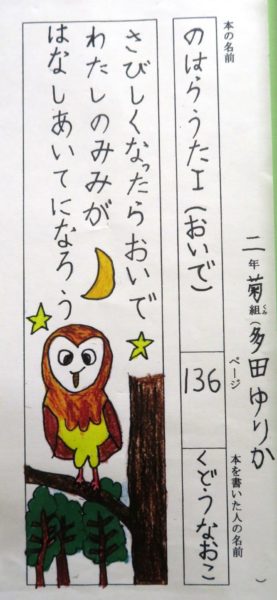 二年菊組(くん)(多田ゆりか)
本の名前
のはらうたI(おいで)
ページ
136
本を書いた人の名前
くどうなおこ
さびしくなったらおいで
わたしのみみが
はなしあいてになろう